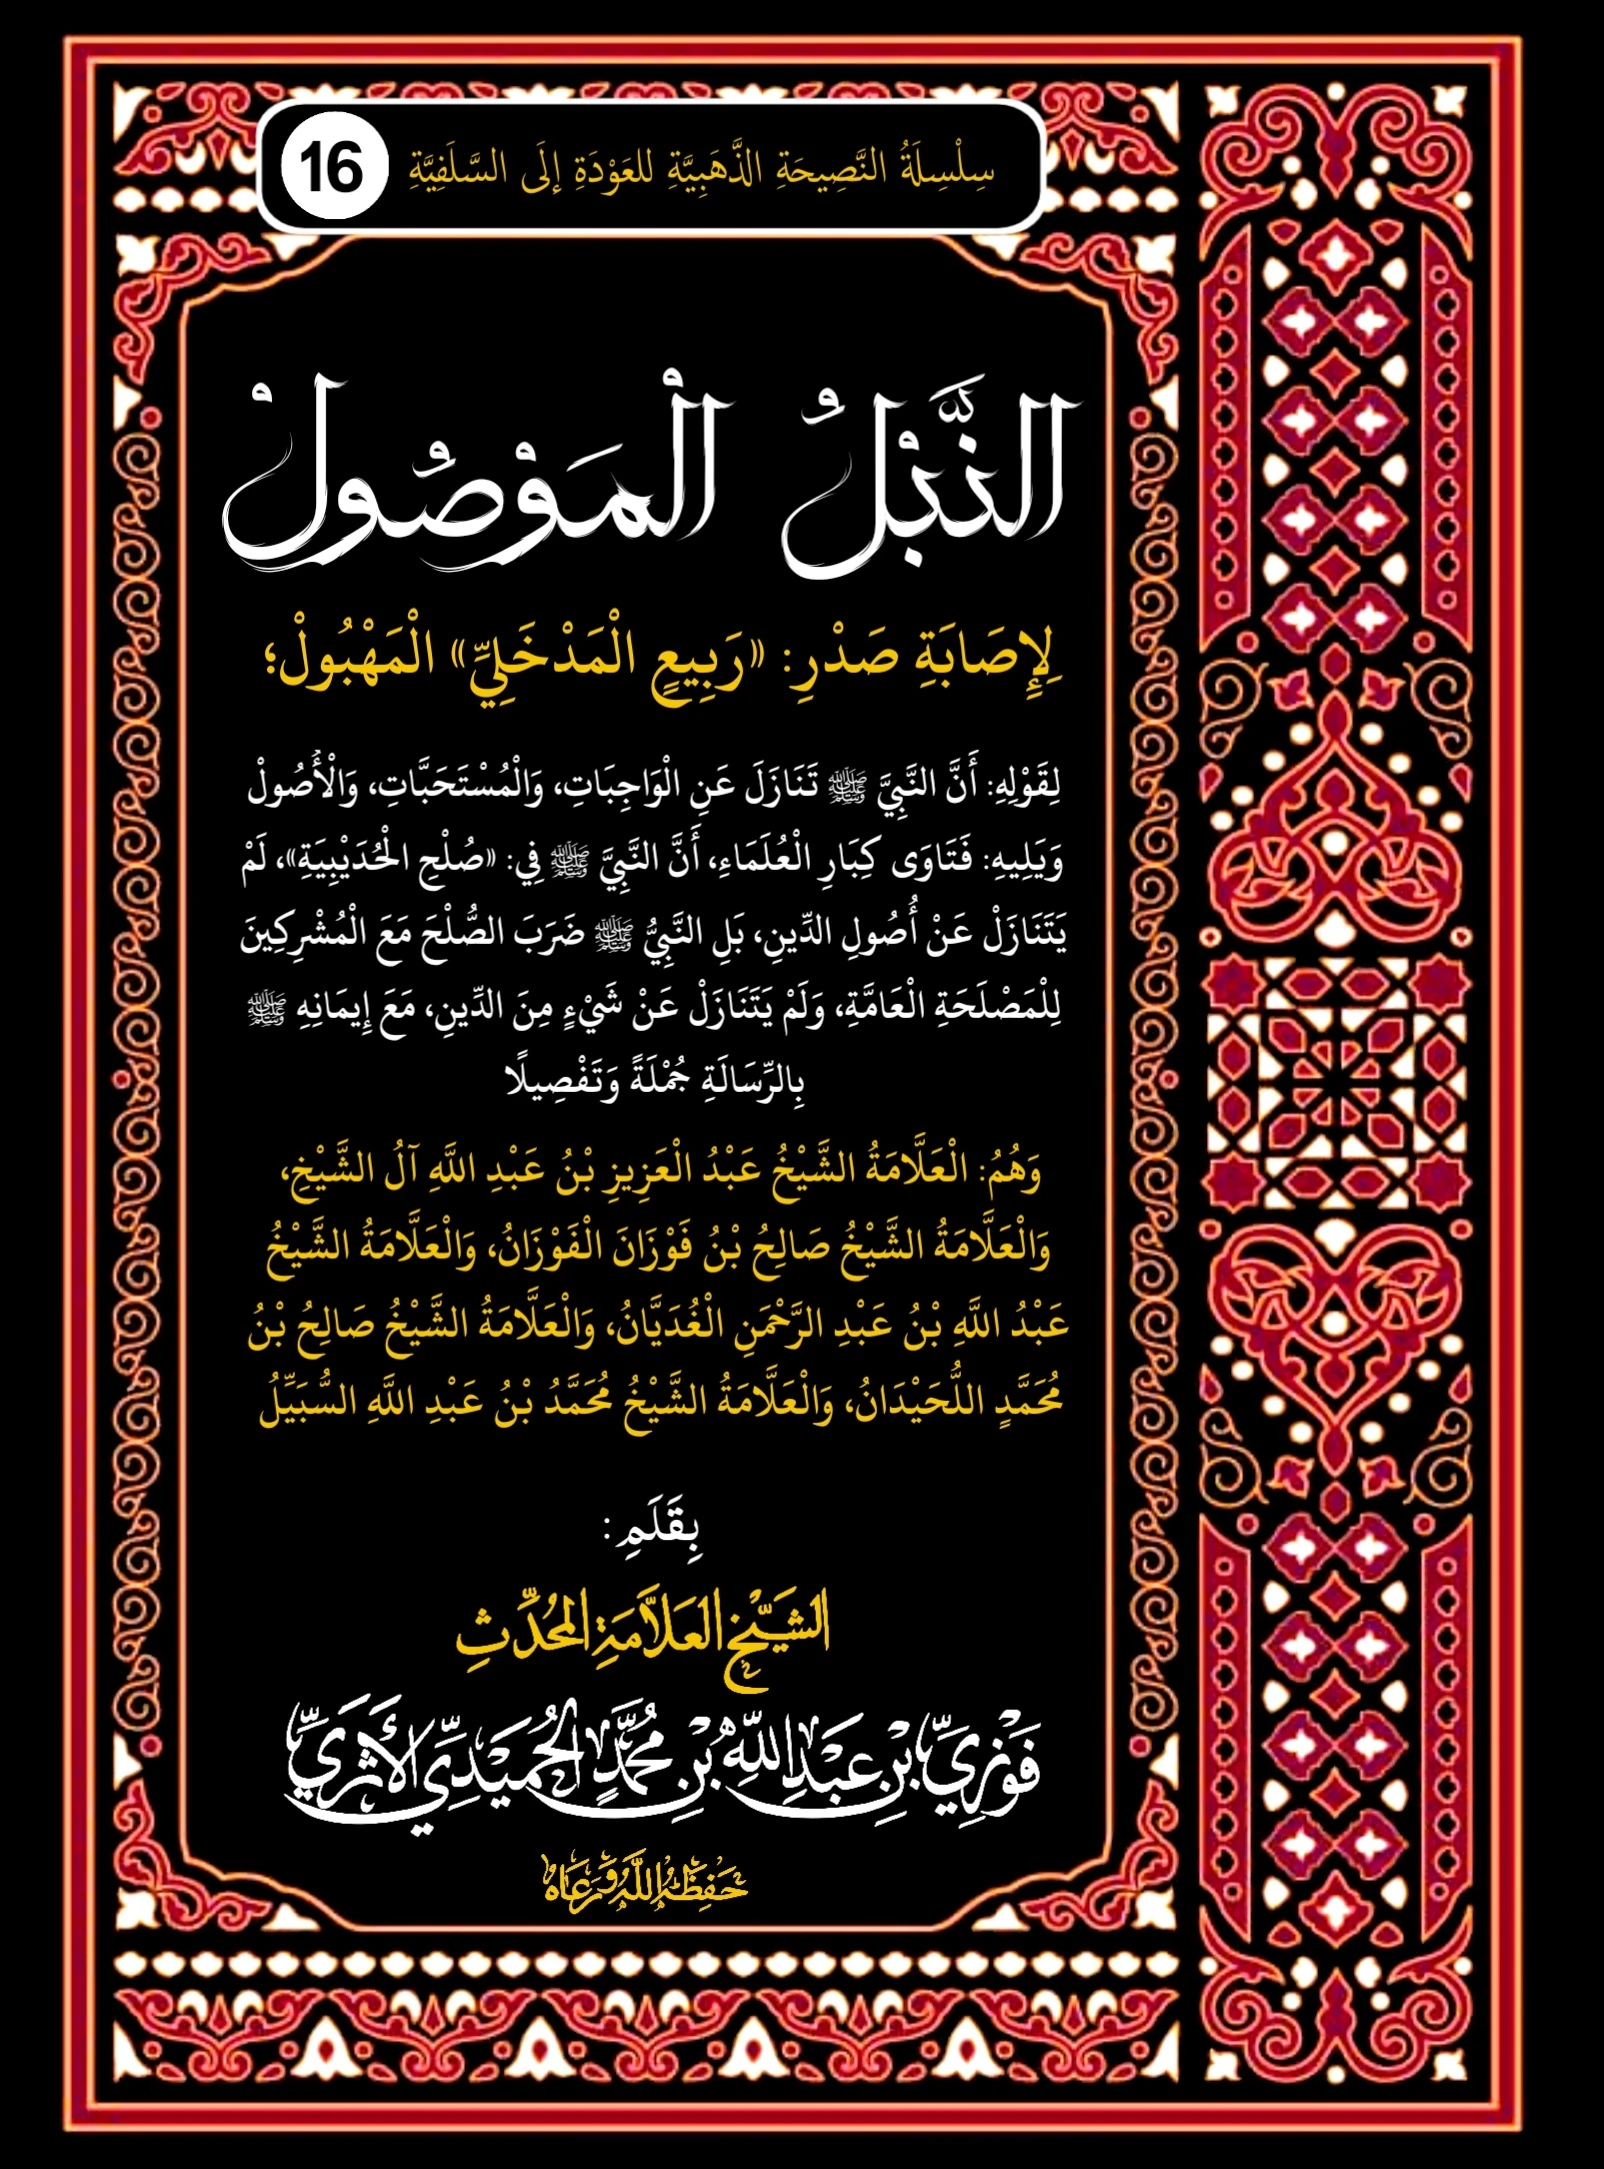 سِلْسِلَةُ النَّصِيحَةِ الذَّهَبِيَّةِ للعَوْدَةِ إلَى السَّلَفِيَّةِ 16
النَّبْلُ الْمَوْصُولْ
لِإِصَابَةِ صَدْرِ: «رَبِيعٍ الْمَدْخَلِيِّ» الْمَهْبُولْ؛
لِقَوْلِهِ: أَنَّ النَّبِيَّ ﷺ تَنَازَلَ عَنِ الْوَاجِبَاتِ، وَالْمُسْتَحَبَّاتِ، وَالْأُصُولْ
وَيَلِيهِ: فَتَاوَى كِبَارِ الْعُلَمَاءِ، أَنَّ النَّبِيَّ ﷺ فِي: «صُلْحِ الْحُدَيْبِيَةِ»، لَمْ
يَتَنَازَلْ عَنْ أُصُولِ الدِّينِ، بَلِ النَّبِيُّ ﷺ ضَرَبَ الصُّلْحَ مَعَ الْمُشْرِكِينَ
لِلْمَصْلَحَةِ الْعَامَّةِ، وَلَمْ يَتَنَازَلْ عَنْ شَيْءٍ مِنَ الدِّينِ، مَعَ إِيمَانِهِ ﷺ
بِالرِّسَالَةِ جُمْلَةً وَتَفْصِيلًا
وَهُمُ: الْعَلَّامَةُ الشَّيْخُ عَبْدُ الْعَزِيزِ بْنُ عَبْدِ اللَّهِ آلُ الشَّيْخِ،
وَالْعَلَّامَةُ الشَّيْخُ صَالِحُ بْنُ فَوْزَانَ الْفَوْزَانُ، وَالْعَلَّامَةُ الشَّيْخُ
عَبْدُ اللَّهِ بْنُ عَبْدِ الرَّحْمَنِ الْغُدَيَّانُ، وَالْعَلَّامَةُ الشَّيْخُ صَالِحُ بْنُ
مُحَمَّدٍ اللُّحَيْدَانُ، وَالْعَلَّامَةُ الشَّيْخُ مُحَمَّدُ بْنُ عَبْدِ اللَّهِ السُّبَيِّلُ
بِقَلَمِ:
الشَّيْخِ العَلَّامَةِ المُحَدِّثِ
فَوْزِيِّ بْنِ عَبْدِ اللَّهِ بْنِ مُحَمَّدٍ الحُمَيْدِيِّ الأَثَرِيِّ
حَفِظَهُ اللَّهُ وَرَعَاهُ